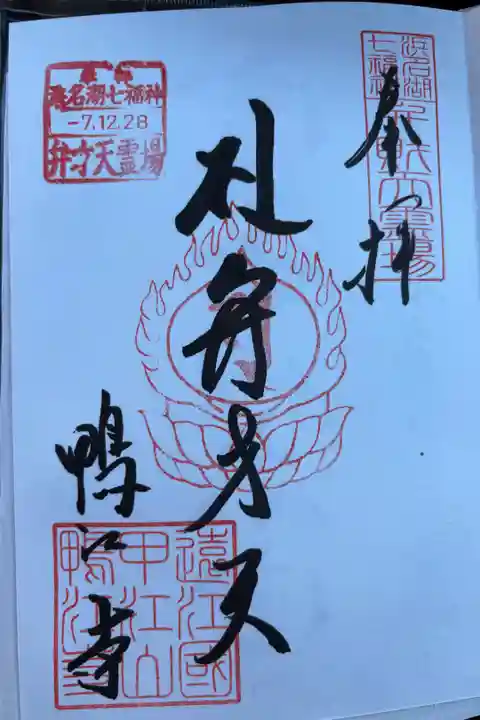 浜名湖
七福神
弁財天霊場
奉拝
札弁才天
鴨江寺
浜名湖七福神
-7.12.28
弁才天霊場
遠江國
甲江山
鴨江寺